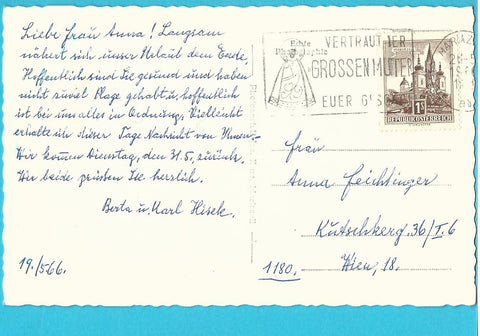 Liebe Frau Anna! Langsam
nähert sich unser Urlaub dem Ende,
Hoffentlich sind Sie gesund und haben
nicht zuviel Plage gehabt u. hoffentlich
ist bei uns alles in Ordnung, Vielleicht
erhalte ich dieser Tage Nachricht von Ihnen.—
Wir kommen Dienstag, den 31.5. zurück.
Wir beide grüßen Sie herzlich.
Berta u. Karl Hisek.
19./5 66.
Echte
Photographie
VERTRAUT DER
GROSSEN MUTTER
EUER
MARIAZ
1S
REPUBLIK ÖSTERREICH
Frau
Anna Feichtinger
Kutschkerg. 36/I. 6
1180. Wien, 18.